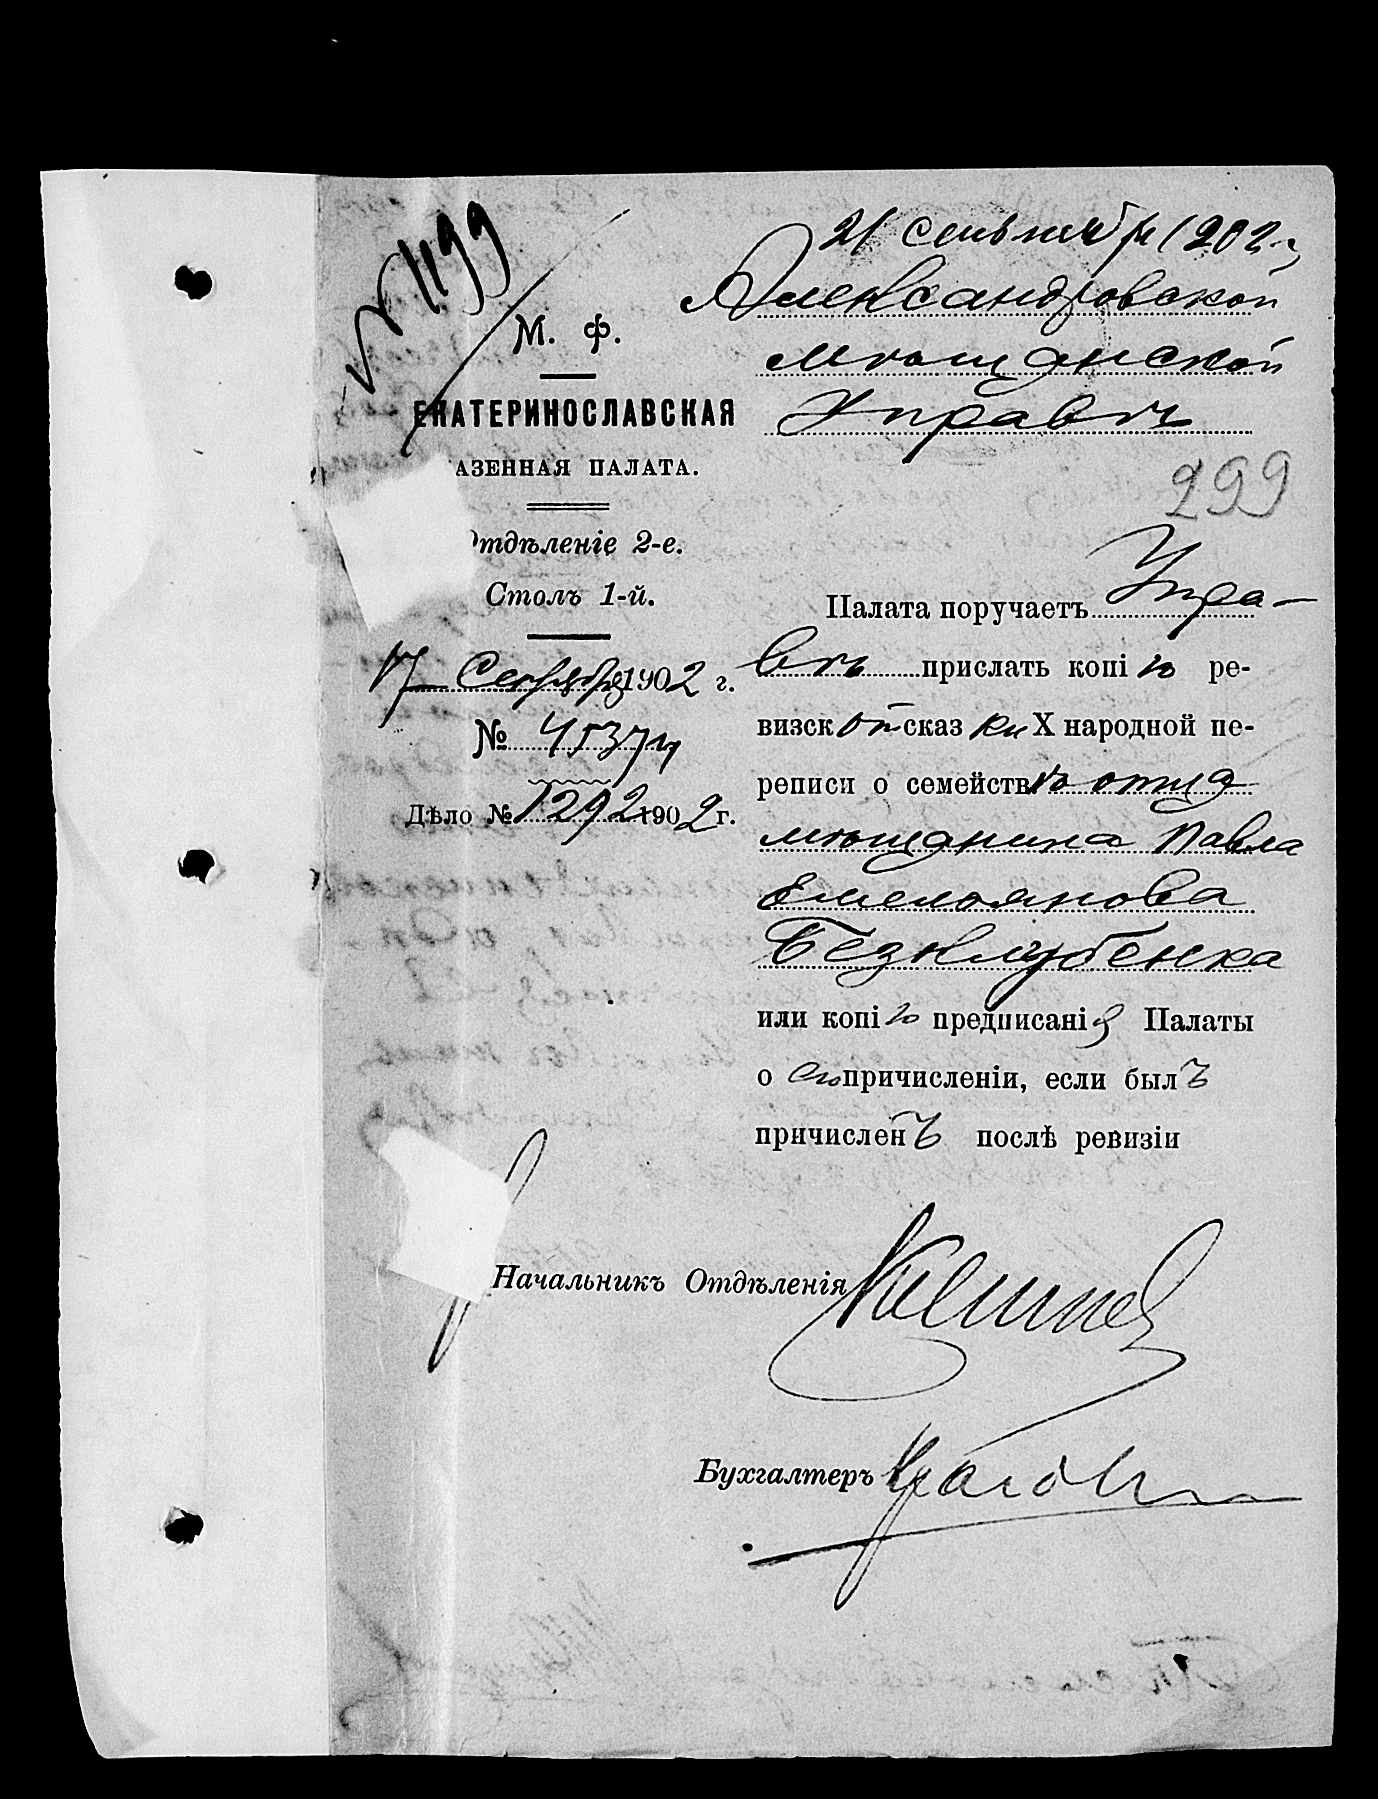 № 1199
21 сентября 1902 г.
М. Ф.
ЕКАТЕРИНОСЛАВСКАЯ
АЗЕННАЯ ПАЛАТА.
Отдѣленіе 2-е.
Столъ 1-й.
17 Сентября 1902 г.
№ 45374
Дѣло № 1292 1902 г.
Александровской
мѣщанской
Управѣ
299
Палата поручаетъ Упра-
вѣ прислать копію ре-
визской сказки X народной пе-
реписи о семействѣ отца
мѣщанина Павла
Емельянова
Безклубенка
или копію предписанія Палаты
о его причисленіи, если былъ
причисленъ послѣ ревизіи
Начальникъ Отдѣленія
Бухгалтеръ